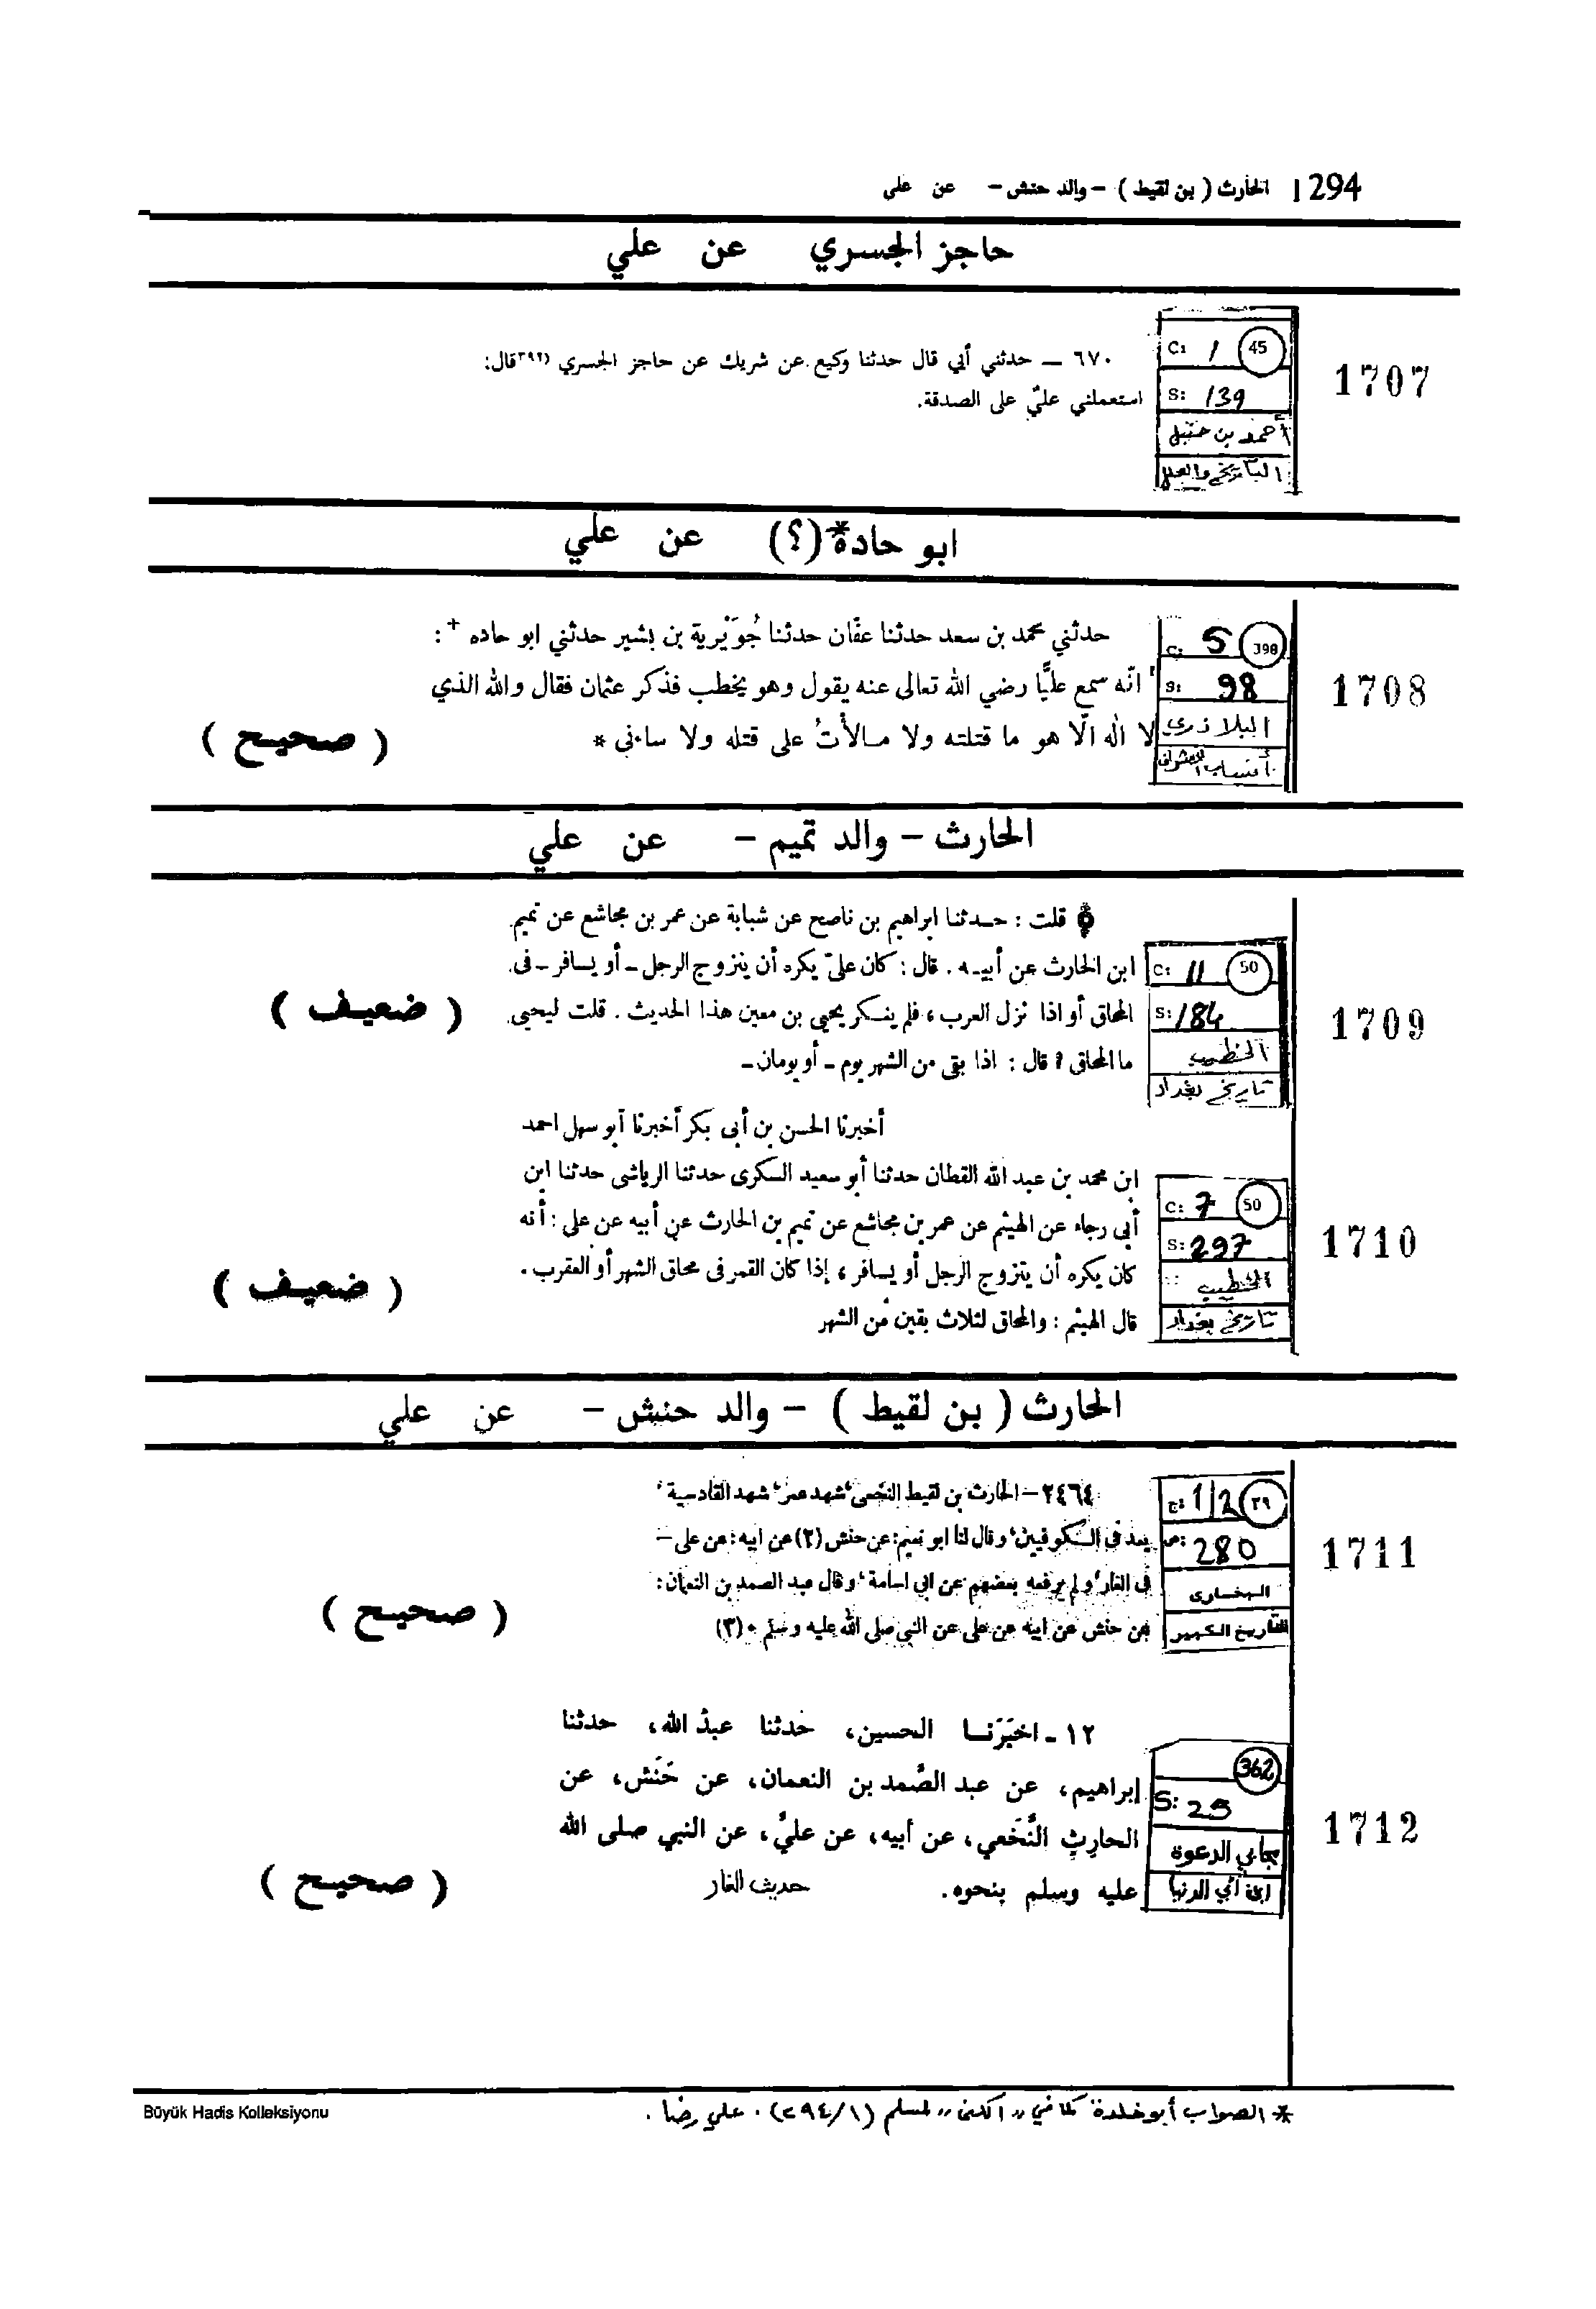 294 | الحارث ( بن لقيط ) - والد حنش - عن علي
حاجز الجسري عن علي
1707
C: 1 45
S: 139
أحمد بن حنبل
التاريخ والعلل
٦٧٠ — حدثني أبي قال حدثنا وكيع عن شريك عن حاجز الجسري (٣٩٢) قال:
استعملني عليّ على الصدقة.
ابو حادة* (؟) عن علي
1708
C: 5 398
S: 98
البلاذري
أنساب الأشراف
حدثني محمد بن سعد حدثنا عفّان حدثنا جُوَيْرية بن بشير حدثني ابو حاده + :
انّه سمع عليًّا رضي الله تعالى عنه يقول وهو يخطب فذكر عثمان فقال والله الذي
لا اله الّا هو ما قتلته ولا مالأتُ على قتله ولا ساءني *
( صحيح )
الحارث - والد تميم - عن علي
1709
C: 11 50
S: 184
الخطيب
تاريخ بغداد
قلت : حدثنا ابراهيم بن ناصح عن شبابة عن عمر بن مجاشع عن تميم
ابن الحارث عن أبيه . قال : كان علىّ يكره أن يتزوج الرجل - أو يسافر - فى
المحاق أو اذا نزل العرب ، فلم ينكر يحيى بن معين هذا الحديث . قلت ليحيى
ما المحاق ؟ قال : اذا بقى من الشهر يوم - أو يومان -
( ضعيف )
1710
C: 7 50
S: 297
الخطيب
تاريخ بغداد
أخبرنا الحسن بن أبى بكر أخبرنا أبو سهل احمد
ابن محمد بن عبد الله القطان حدثنا أبو سعيد السكرى حدثنا الرياشى حدثنا ابن
أبى رجاء عن الهيثم عن عمر بن مجاشع عن تميم بن الحارث عن أبيه عن على : أنه
كان يكره أن يتزوج الرجل أو يسافر ، إذا كان القمر فى محاق الشهر أو العقرب .
قال الهيثم : والمحاق لثلاث بقين من الشهر
( ضعيف )
الحارث ( بن لقيط ) - والد حنش - عن علي
1711
ج: 1/2 ٣٩
ص: 280
البخارى
التاريخ الكبير
٢٤٦٤ - الحارث بن لقيط النخعى، شهد عمر، شهد القادسية،
يعد فى الكوفيين، وقال لنا ابو نعيم: عن حنش (٢) عن ابيه: عن على -
فى الغار، ولم يرفعه بعضهم عن ابى اسامة، وقال عبد الصمد بن النعمان:
عن حنش عن ابيه عن على عن النبى صلى الله عليه وسلم . (٣)
( صحيح )
1712
362
S: 25
مجابي الدعوة
ابن أبي الدنيا
١٢ - اخبَرَنا الحسين، حَدثنا عبدُ الله، حدثنا
إبراهيم، عن عبد الصَّمد بن النعمان، عن حَنَش، عن
الحارِثِ النَّخَعي، عن أبيه، عن عليٍّ، عن النبي صلى الله
عليه وسلم بنحوه. حديث الغار
( صحيح )
* الصواب أبو خلدة كما في ,, الكنى ,, لمسلم (١/٢٩٤) . علي رضا .
Büyük Hadis Kolleksiyonu